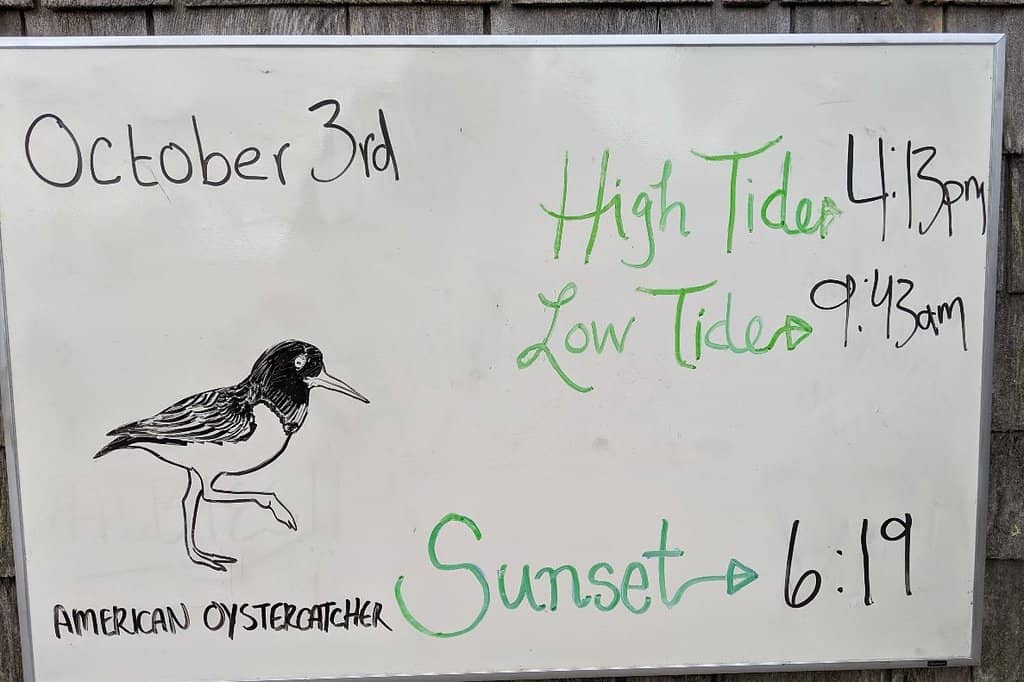 October 3rd
High Tide 4:13pm
Low Tide 9:43am
Sunset 6:19
AMERICAN OYSTERCATCHER